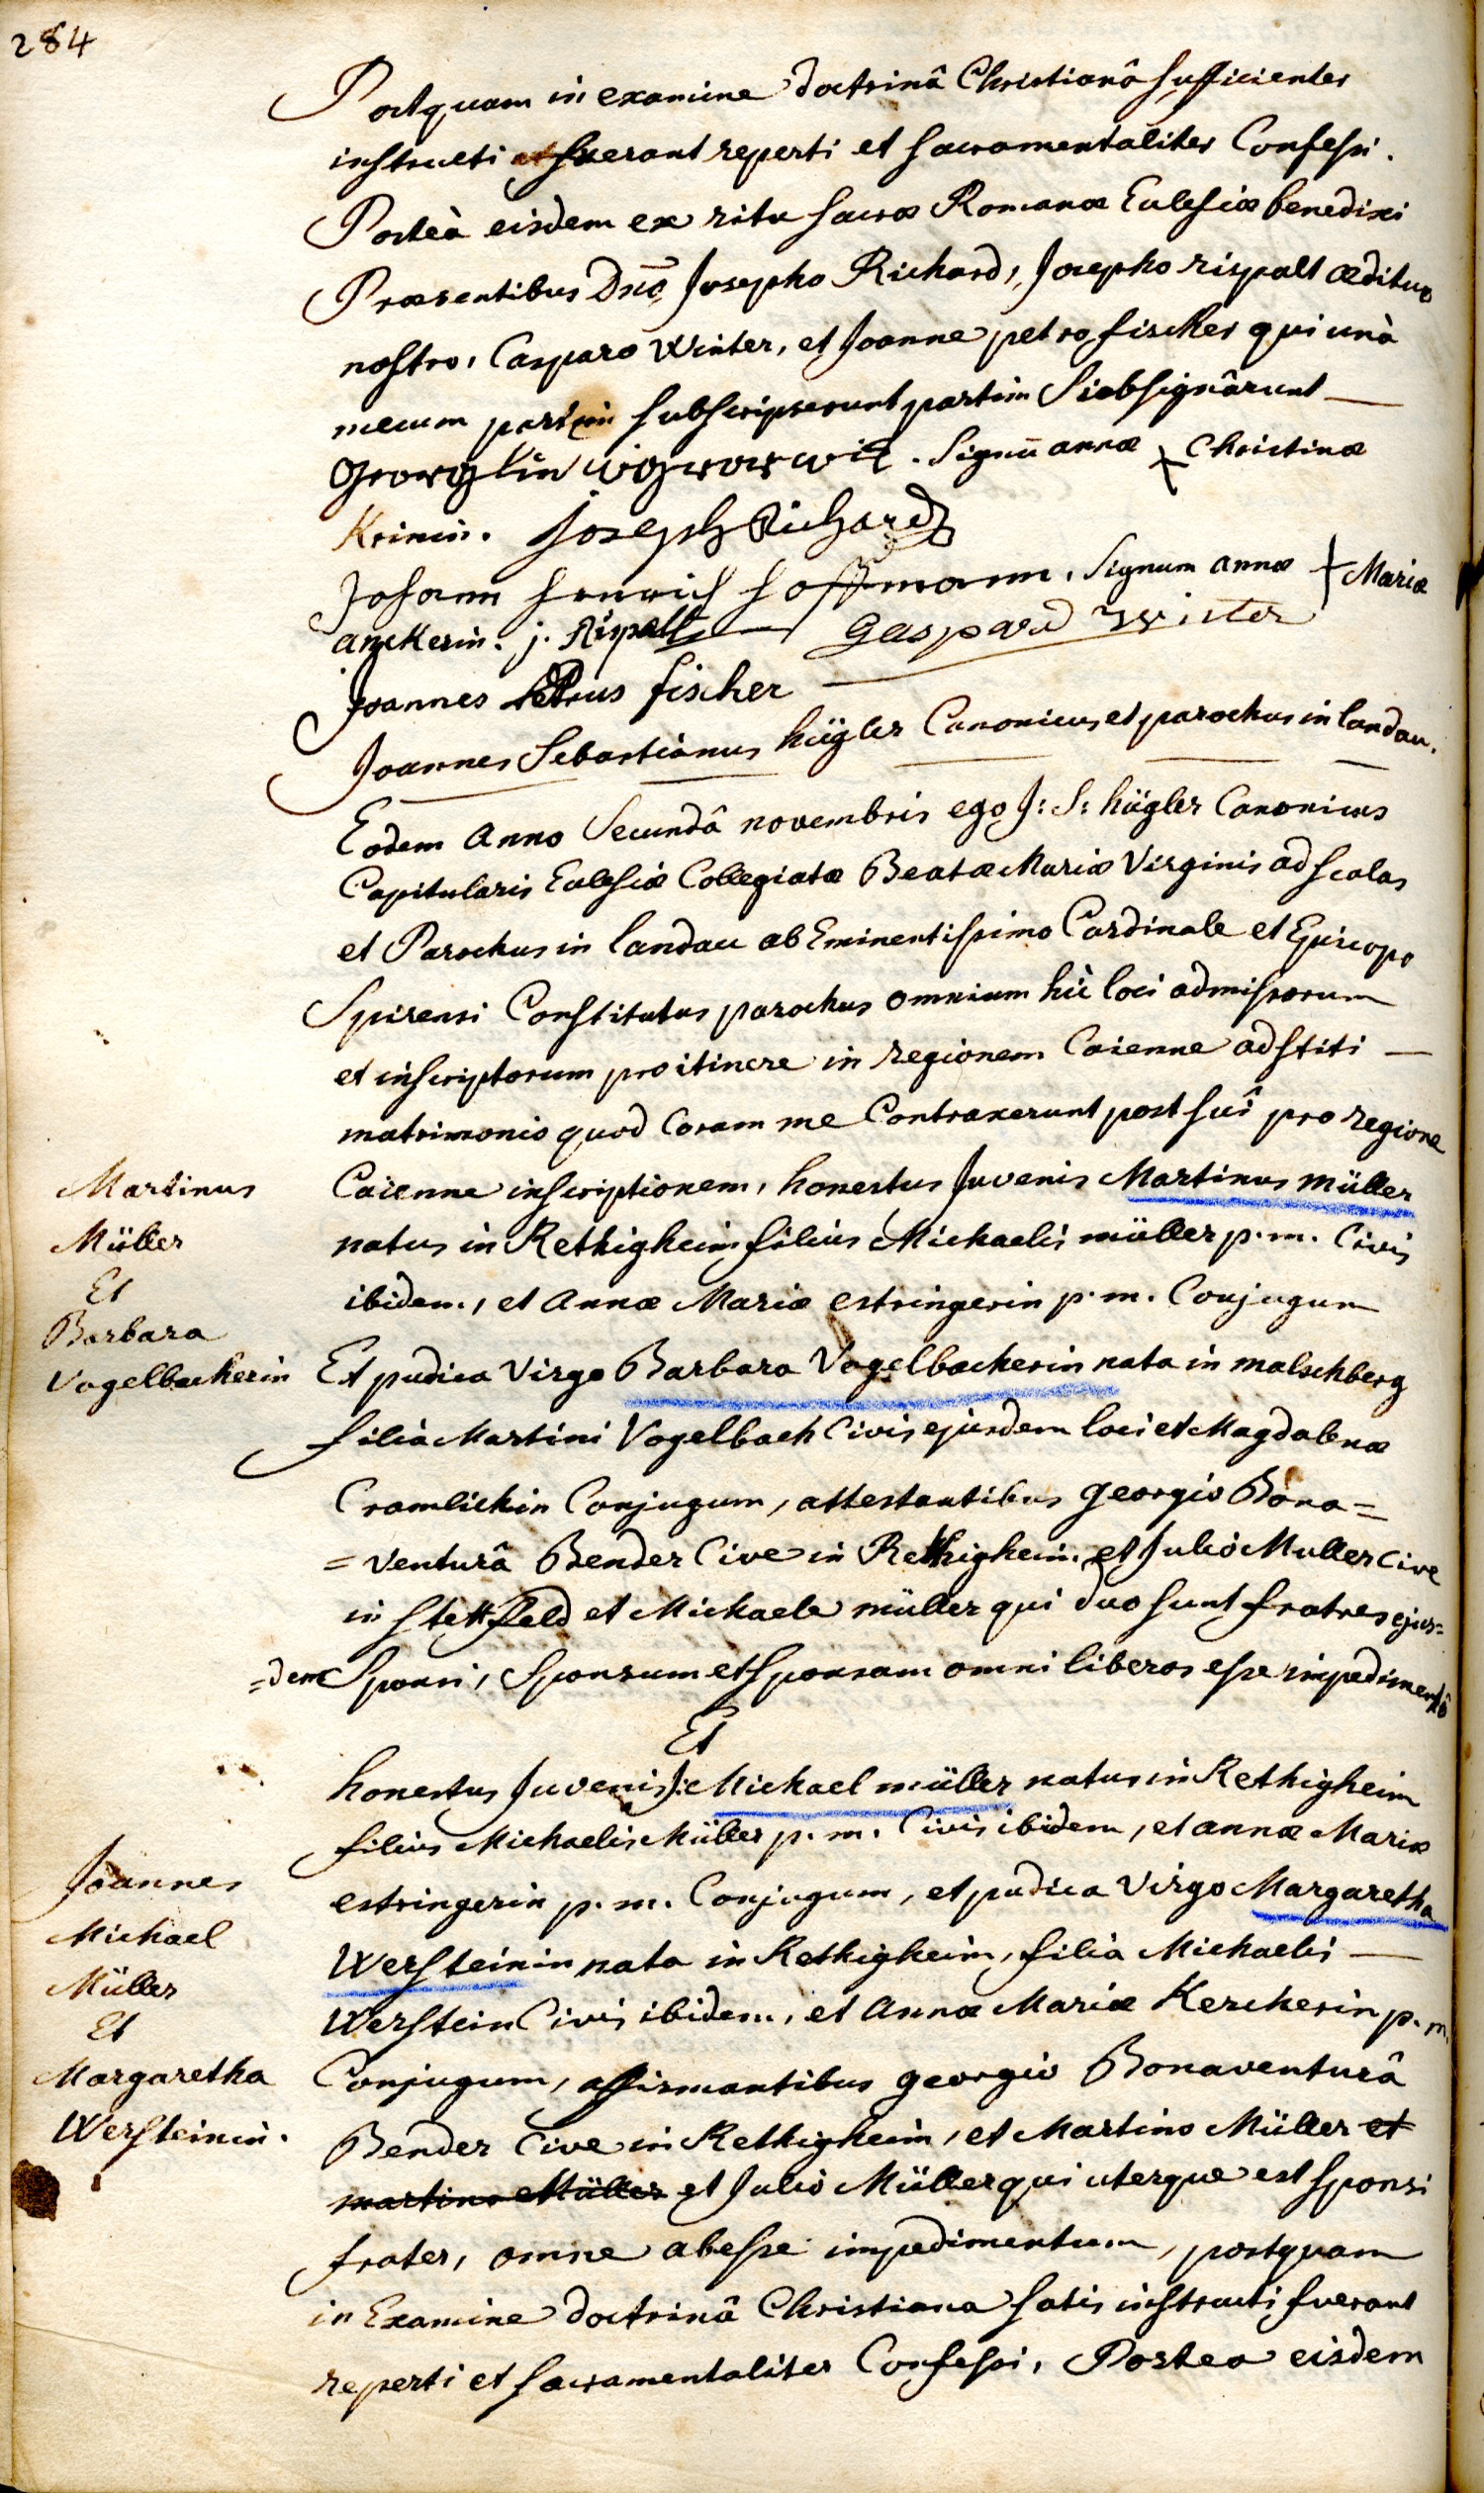 284
Postquam in examine doctrinâ Christianâ sufficienter
instructi fuerant reperti et sacramentaliter Confessi.
Posteà eisdem ex ritu sacræ Romanæ Ecclesiæ benedixi
Præsentibus Dnō Josepho Richard, Josepho rispalt ædituo
nostro, Casparo Winter, et Joanne petro fischer qui unà
mecum partim subscripserunt partim Subsignârunt —
Georg . Signū annæ X Christinæ
Krinin. Joseph Richard
Johann Henrich Hoffmann. Signum annæ + Mariæ
anckerin. j. Rispalt — Gaspard Winter
Joannes Petrus fischer —
Joannes Sebastianus hügler Canonicus et parochus in landau.
Eodem Anno Secundâ novembris ego J: S: hügler Canonicus
Capitularis Ecclesiæ Collegiatæ Beatæ Mariæ Virginis ad scalas
et Parochus in landau ab Eminentissimo Cardinale et Episcopo
Spirensi Constitutus parochus omnium hìc loci admissorum
et inscriptorum pro itinere in regionem Caienne adstiti —
matrimonio quod Coram me Contraxerunt post suî pro regione
Caïenne inscriptionem, honestus Juvenis Martinus müller
natus in Rethigheim filius Michaelis müller p. m. Civis
ibidem, et Annæ Mariæ estringerin p. m. Conjugum
Martinus
Müller
Et
Barbara
Vogelbackerin
Et pudica Virgo Barbara Vogelbackerin nata in malschberg
filia Martini Vogelbach Civis ejusdem loci et Magdalenæ
Cramlichin Conjugum, attestantibus georgio Bona=
=venturâ Bender Cive in Rethigheim et Julio Muller cive
in stettfeld et Michaele müller qui duo sunt fratres ejus=
=dem Sponsi, Sponsum et sponsam omni liberos esse impedimentô
Et
honestus Juvenis J: Michael müller natus in Rethigheim
filius Michaelis Müller p. m. Civis ibidem, et annæ Mariæ
estringerin p. m. Conjugum, et pudica Virgo Margaretha
Wersteinin nata in Rethigheim, filia Michaelis —
Werstein Civis ibidem, et Annæ Mariæ Kerckerin p. m.
Joannes
Michael
Müller
Et
Margaretha
Wersteinin.
Conjugum, affirmantibus georgio Bonaventurâ
Bender Cive in Rethigheim, et Martino Müller et
martino Müller et Julio Müller qui uterque est sponsi
frater, omne abesse impedimentum, postquam
in Examine doctrinâ Christiana satis instructi fuerant
reperti et sacramentaliter Confessi, Postea eisdem